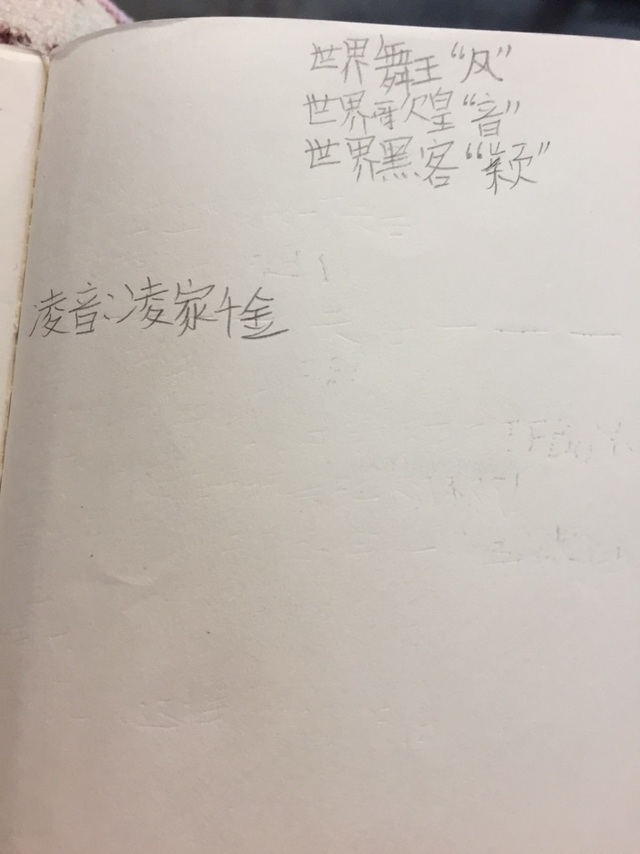 世界舞王“风”
世界歌皇“音”
世界黑客“”
凌音:凌家千金